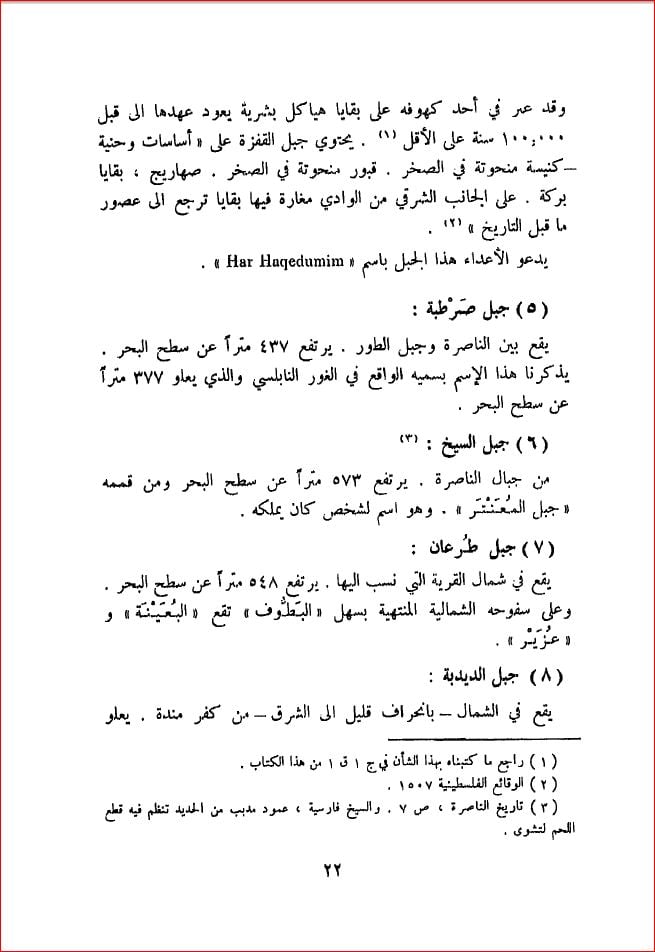 وقد عثر في أحد كهوفه على بقايا هياكل بشرية يعود عهدها الى قبل
١٠٠,٠٠٠ سنة على الأقل (١) . يحتوي جبل القفزة على « أساسات وحنية
ـ كنيسة منحوتة في الصخر . قبور منحوتة في الصخر . صهاريج ، بقايا
بركة . على الجانب الشرقي من الوادي مغارة فيها بقايا ترجع الى عصور
ما قبل التاريخ » (٢) .
يدعو الأعداء هذا الجبل باسم « Har Haqedumim » .
( ٥ ) جبل صَرْطبة :
يقع بين الناصرة وجبل الطور . يرتفع ٤٣٧ متراً عن سطح البحر .
يذكرنا هذا الإسم بسميه الواقع في الغور النابلسي والذي يعلو ٣٧٧ متراً
عن سطح البحر .
( ٦ ) جبل السيخ : (٣)
من جبال الناصرة . يرتفع ٥٧٣ متراً عن سطح البحر ومن قممه
« جبل المُعَنْتَر » . وهو اسم لشخص كان يملكه .
( ٧ ) جبل طُرعان :
يقع في شمال القرية التي نسب اليها . يرتفع ٥٤٨ متراً عن سطح البحر .
وعلى سفوحه الشمالية المنتهية بسهل « البَطُّوف » تقع « البُعَيْنَة » و
« عُزَيْر » .
( ٨ ) جبل الديدبة :
يقع في الشمال ـ بانحراف قليل الى الشرق ـ من كفر مندة . يعلو
( ١ ) راجع ما كتبناه بهذا الشأن في ج ١ ق ١ من هذا الكتاب .
( ٢ ) الوقائع الفلسطينية ١٥٠٧ .
( ٣ ) تاريخ الناصرة ، ص ٧ . والسيخ فارسية ، عمود مدبب من الحديد تنظم فيه قطع
اللحم لتشوى .
٢٢